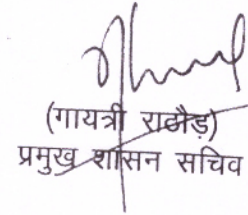 (गायत्री राठौड़)
प्रमुख शासन सचिव